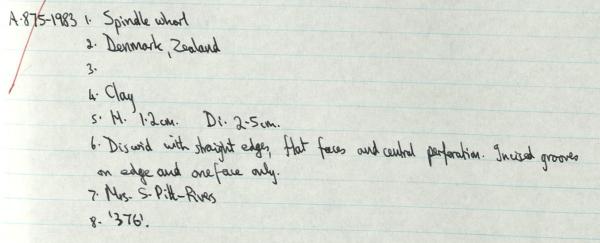 A.875-1983 1. Spindle whorl
2. Denmark, Zealand
3.
4. Clay
5. H. 1.2cm. Di. 2.5cm.
6. Discoid with straight edges, flat faces and central perforation. Incised grooves
on edge and one face only.
7. Mrs. S. Pitt-Rivers
8. '376'.